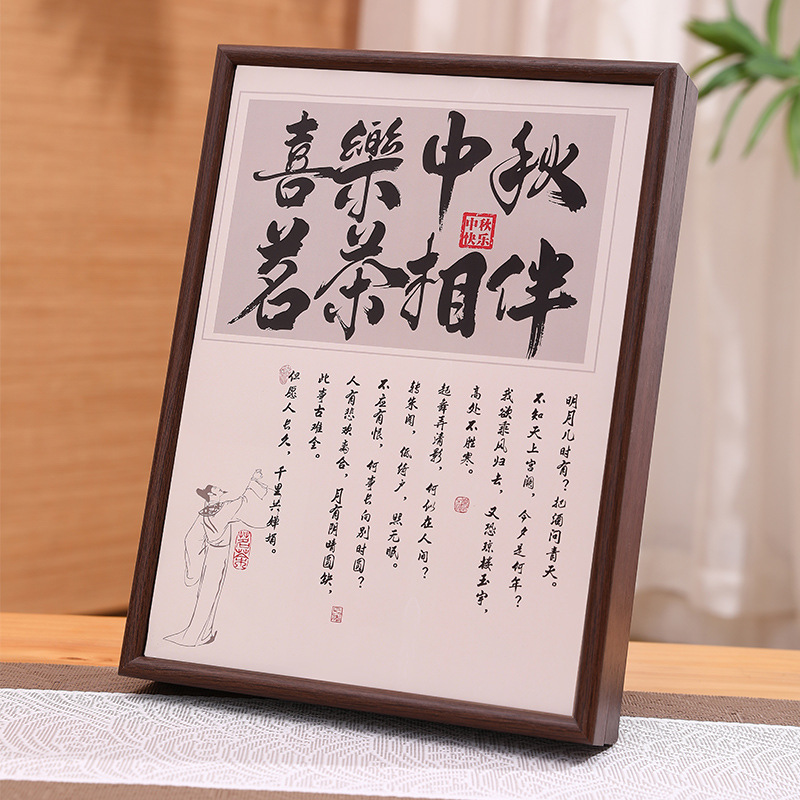 喜樂中秋
中秋
快乐
茗茶相伴
明月几时有？把酒问青天。
不知天上宫阙，今夕是何年？
我欲乘风归去，又恐琼楼玉宇，
高处不胜寒。
起舞弄清影，何似在人间？
转朱阁，低绮户，照无眠。
不应有恨，何事长向别时圆？
人有悲欢离合，月有阴晴圆缺，
此事古难全。
但愿人长久，千里共婵娟。
茗茶